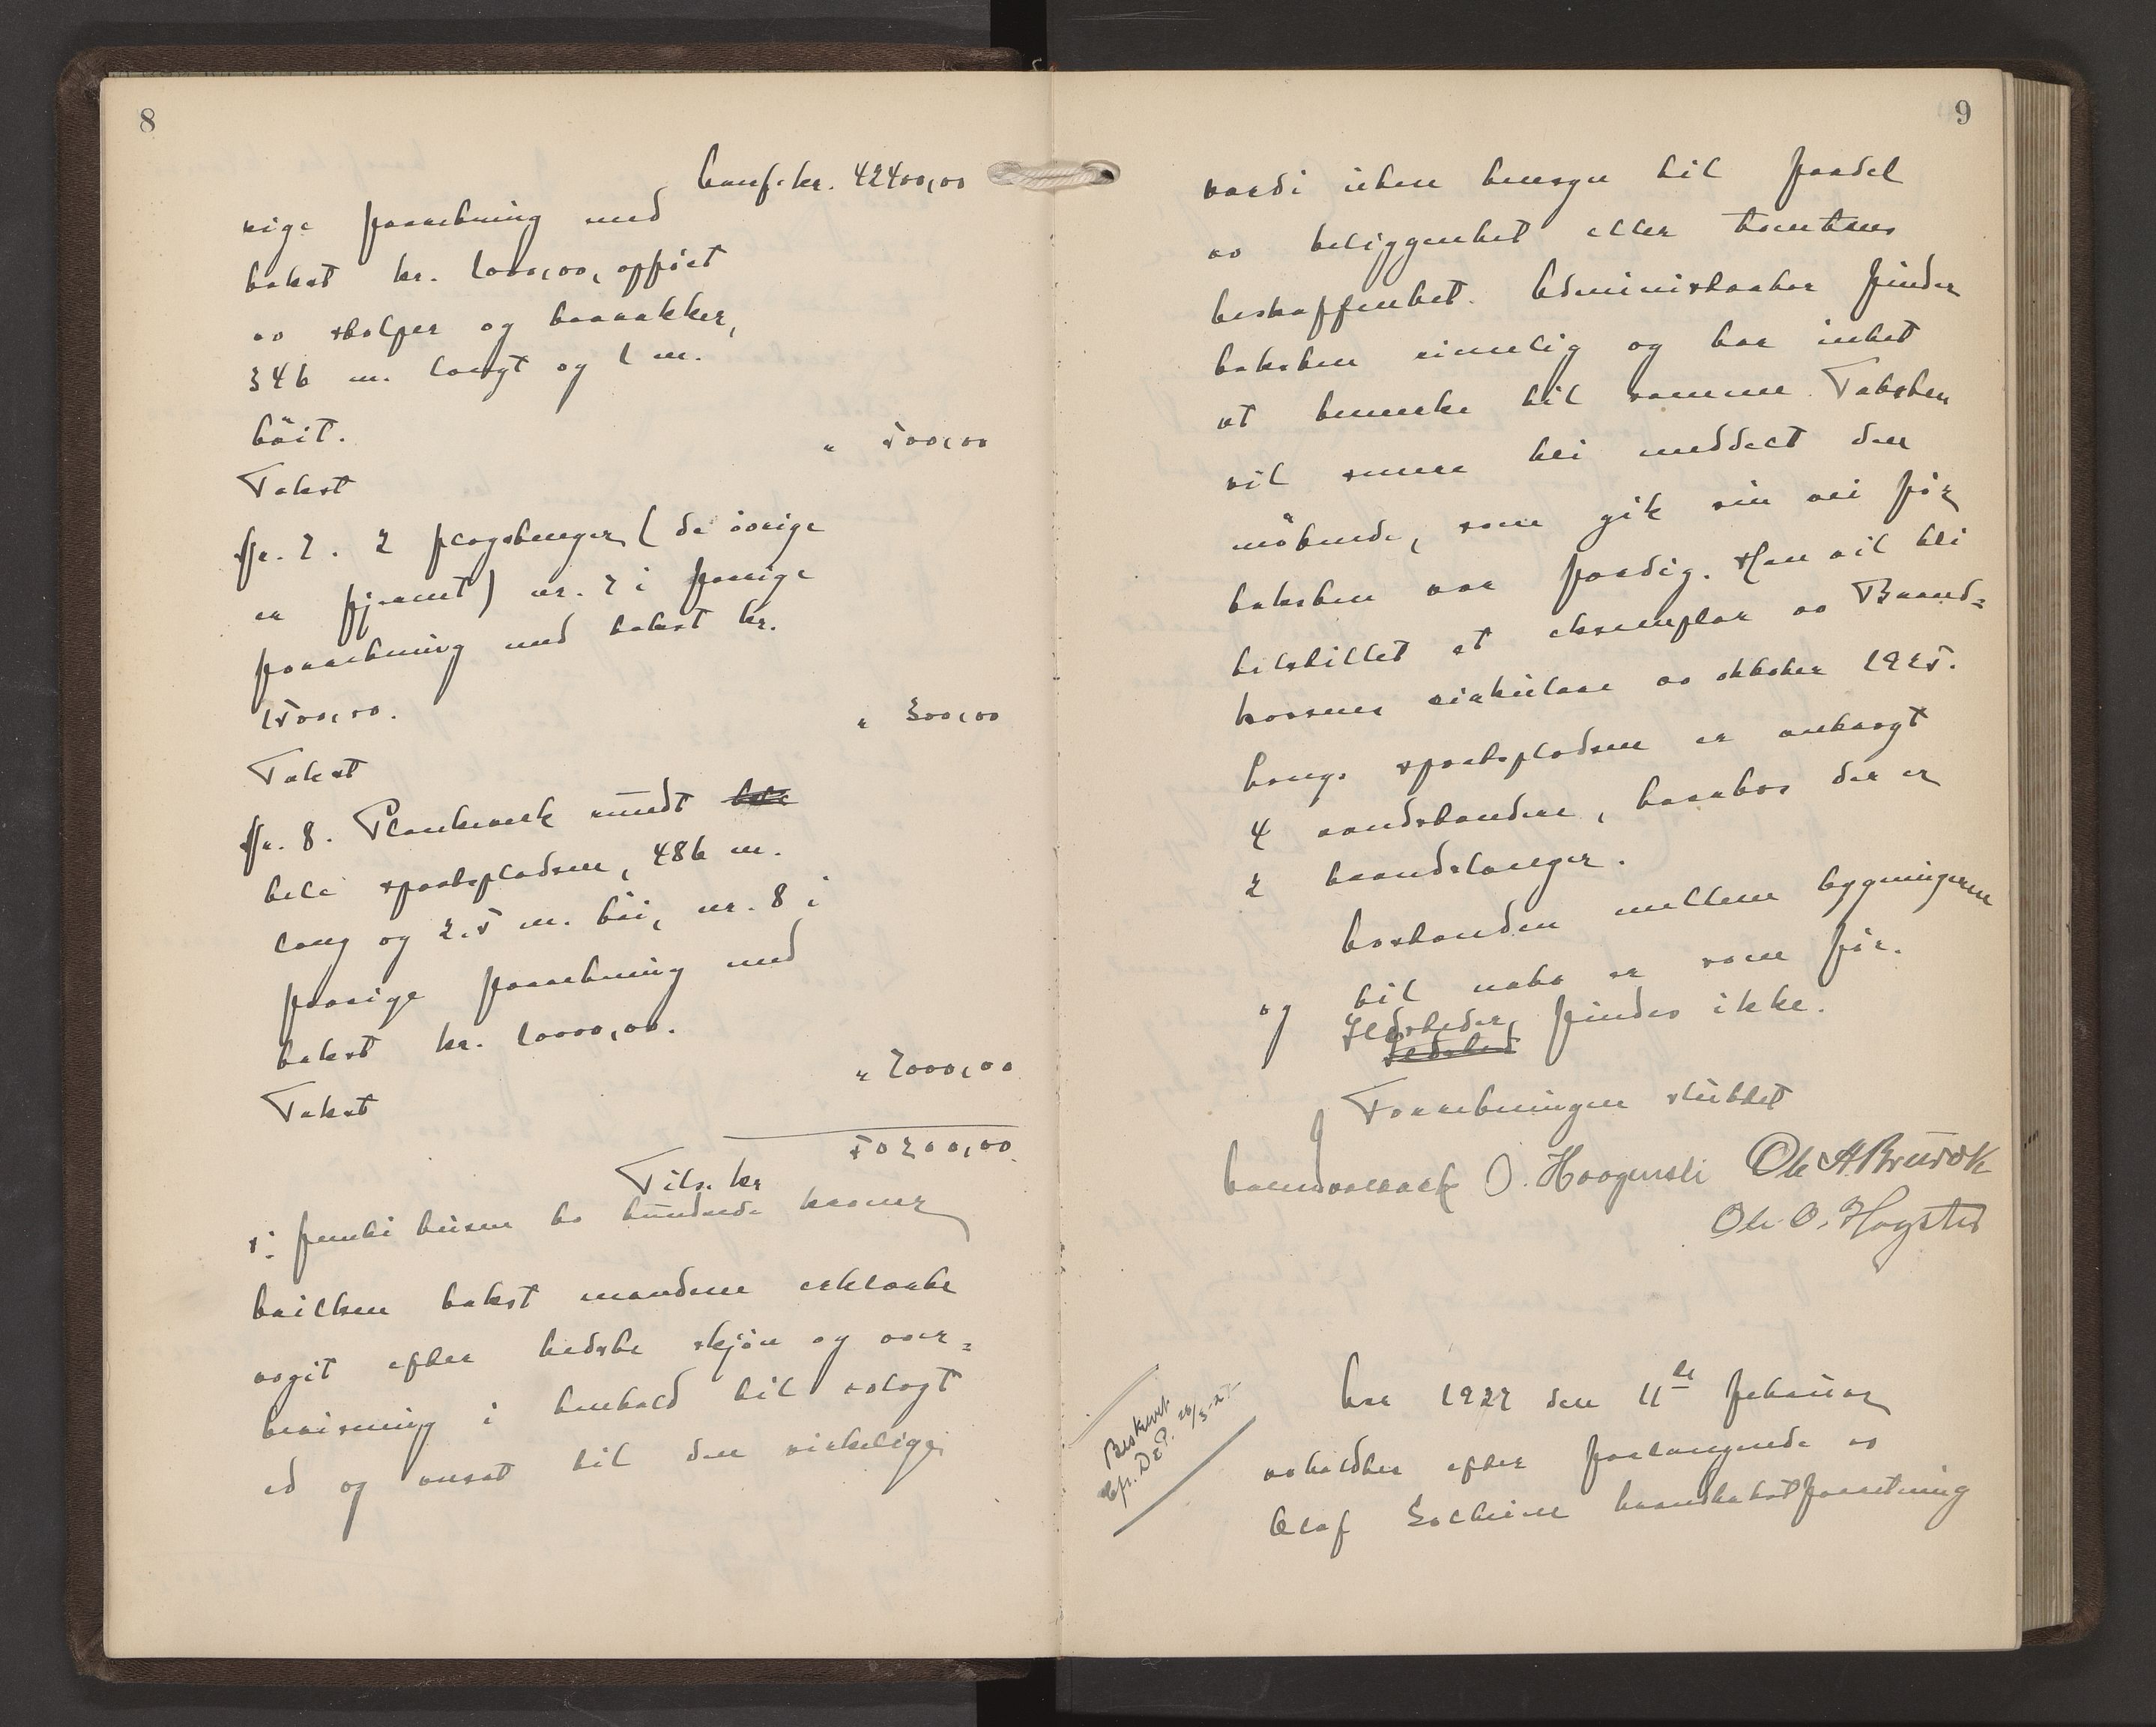 8
Transf. kr. 42400,00
rige forretning med
takst kr. 1000,00, opført
av stolper og bordbakker,
346 m. langt og 1 m.
høit.
Takst " 500,00
Nr. 7. 2 flagstenger (de øvrige
er fjernet) nr. 7 i forrige
forretning med takst kr.
1500,00.
Takst " 300,00
Nr. 8. Plankeverk rundt hele
hele sportspladsen, 486 m.
lang og 2.5 m. høi, nr. 8 i
forrige forretning med
takst kr. 10000,00.
Takst " 7000,00
Tils. kr 50200,00
s: femti tusen to hundrede kroner
hvilken takst mændene erklærte
avgit efter bedste skjøn og over=
bevisning i henhold til avlagt
ed og ansat til den virkelige
9
værdi uten hensyn til fordel
av beliggenhet eller tomtens
beskaffenhet. Administrator finder
taksten rimelig og har intet
at bemerke til samme. Taksten
vil senere bli meddelt den
møtende, som gik sin vei før
taksten var færdig. Han vil bli
tilstillet et eksemplar av Brand=
kassens cirkulære av oktober 1925.
Langs sportspladsen er anbragt
4 vandstendere, hvorhos der er
2 brandslanger.
Avstanden mellem bygningerne
og til nabo er som før.
Ildsteder findes ikke.
Ildsted
Forretningen sluttet
O. Haagensli Ole A Brurok
Ole O. Hogsted
Beskrevet
Gpr. D E P. 26/3-27
Aar 1927 den 11te februar
avholdtes efter forlangende av
Olaf Solheim brandtakstforretning